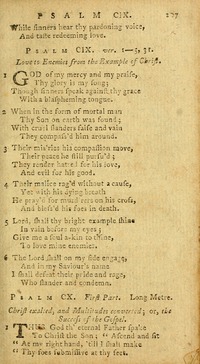 PSALM CIX. 207
While sinners hear thy pardoning voice,
And taste redeeming love.
PSALM CIX. ver. 1—5, 31.
Love to Enemies from the Example of Christ.
1 GOD of my mercy and my praise,
Thy glory is my song;
Though sinners speak against thy grace
With a blaspheming tongue.
2 When in the form of mortal man
Thy Son on earth was found;
With cruel slanders false and vain
They compass'd him around.
3 Their mis'ries his compassion move,
Their peace he still pursu'd;
They render hatred for his love,
And evil for his good.
4 Their malice rag'd without a cause,
Yet with his dying breath
He pray'd for murd'rers on his cross,
And bless'd his foes in death.
5 Lord, shall thy bright example shine
In vain before my eyes;
Give me a soul a-kin to thine,
To love mine enemies.
6 The Lord shall on my side engage,
And in my Saviour's name
I shall defeat their pride and rage,
Who slander and condemn.
PSALM CX. First Part. Long Metre.
Christ exalted, and Multitudes converted; or, the
Success of the Gospel.
1 THUS God th' eternal Father spake
To Christ the Son; "Ascend and sit
"At me right hand, 'till I shall make
"Thy foes submissive at thy feet.